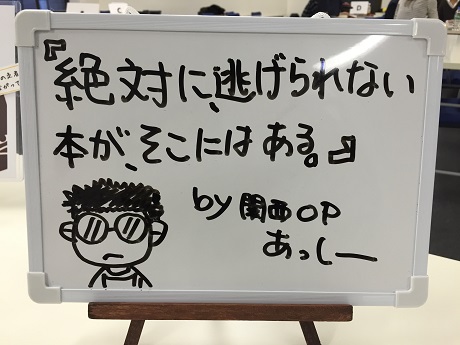 『絶対に、逃げられない
本が、そこにはある。』
by 関西OP
あっしー